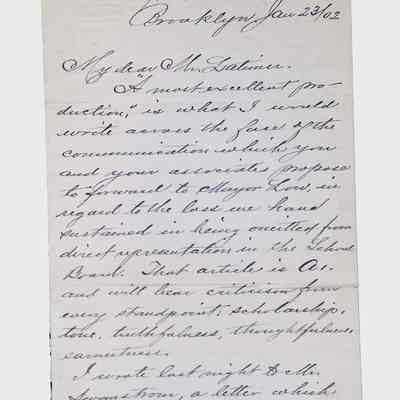 Brooklyn Jan 23/02
My dear Mr. Latimer.
"A most excellent pro-
duction," is what I would
write across the face of the
communication which you
and your associates propose
to forward to Mayor Low, in
regard to the loss we have
sustained in being omitted from
direct representation in the School
Board. That article is A1.
and will bear criticism from
every standpoint; scholarship,
tone, truthfulness, thoughtfulness
earnestness.
I wrote last night to Mr.
Swanstrom, a letter which